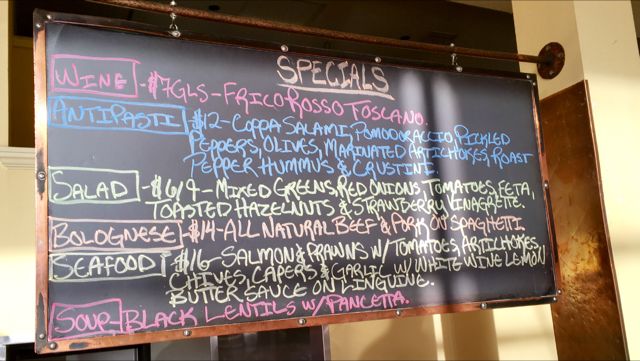 SPECIALS
WINE - $7GLS - FRICO ROSSO TOSCANO.
ANTIPASTI $12 - COPPA SALAMI, POMODORACCIO, PICKLED
PEPPERS, OLIVES, MARINATED ARTICHOKES, ROAST
PEPPER HUMMUS & CRUSTINI.
SALAD - $6/9 - MIXED GREENS, RED ONIONS, TOMATOES, FETA,
TOASTED HAZELNUTS & STRAWBERRY VINAGRETTE.
BOLOGNESE $14 - ALL NATURAL BEEF & PORK O/ SPAGHETTI.
SEAFOOD $16 - SALMON & PRAWNS W/ TOMATOES, ARTICHOKES,
CHIVES, CAPERS & GARLIC W/ WHITE WINE LEMON
BUTTER SAUCE ON LINGUINE.
SOUP BLACK LENTILS W/ PANCETTA.